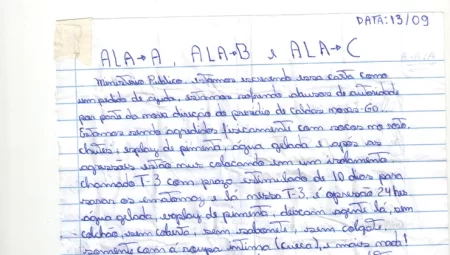 DATA: 13/09
ALA→A, ALA→B e ALA→C
Ministerio Publico, estamos escrevendo essa carta como
um pedido de ajuda, estamos sofrendo abusos de autoridade
por parte da nova direção do presidio de caldas novas-GO.
Estamos sendo agredidos fisicamente com socos no rosto,
chutes, esplay de pimenta, água gelada e apos as
agressões estão nus colocando em um isolamento
chamado T-3 com prazo estimulado de 10 dias para
sarar os ematomas e lá nessa T-3, é opressão 24 hrs
água gelada, esplay de pimenta, deixam agente lá, sem
colchão, sem coberta, sem sabonete, sem colgate,
somente com á roupa intima (cueca), e mais nada!